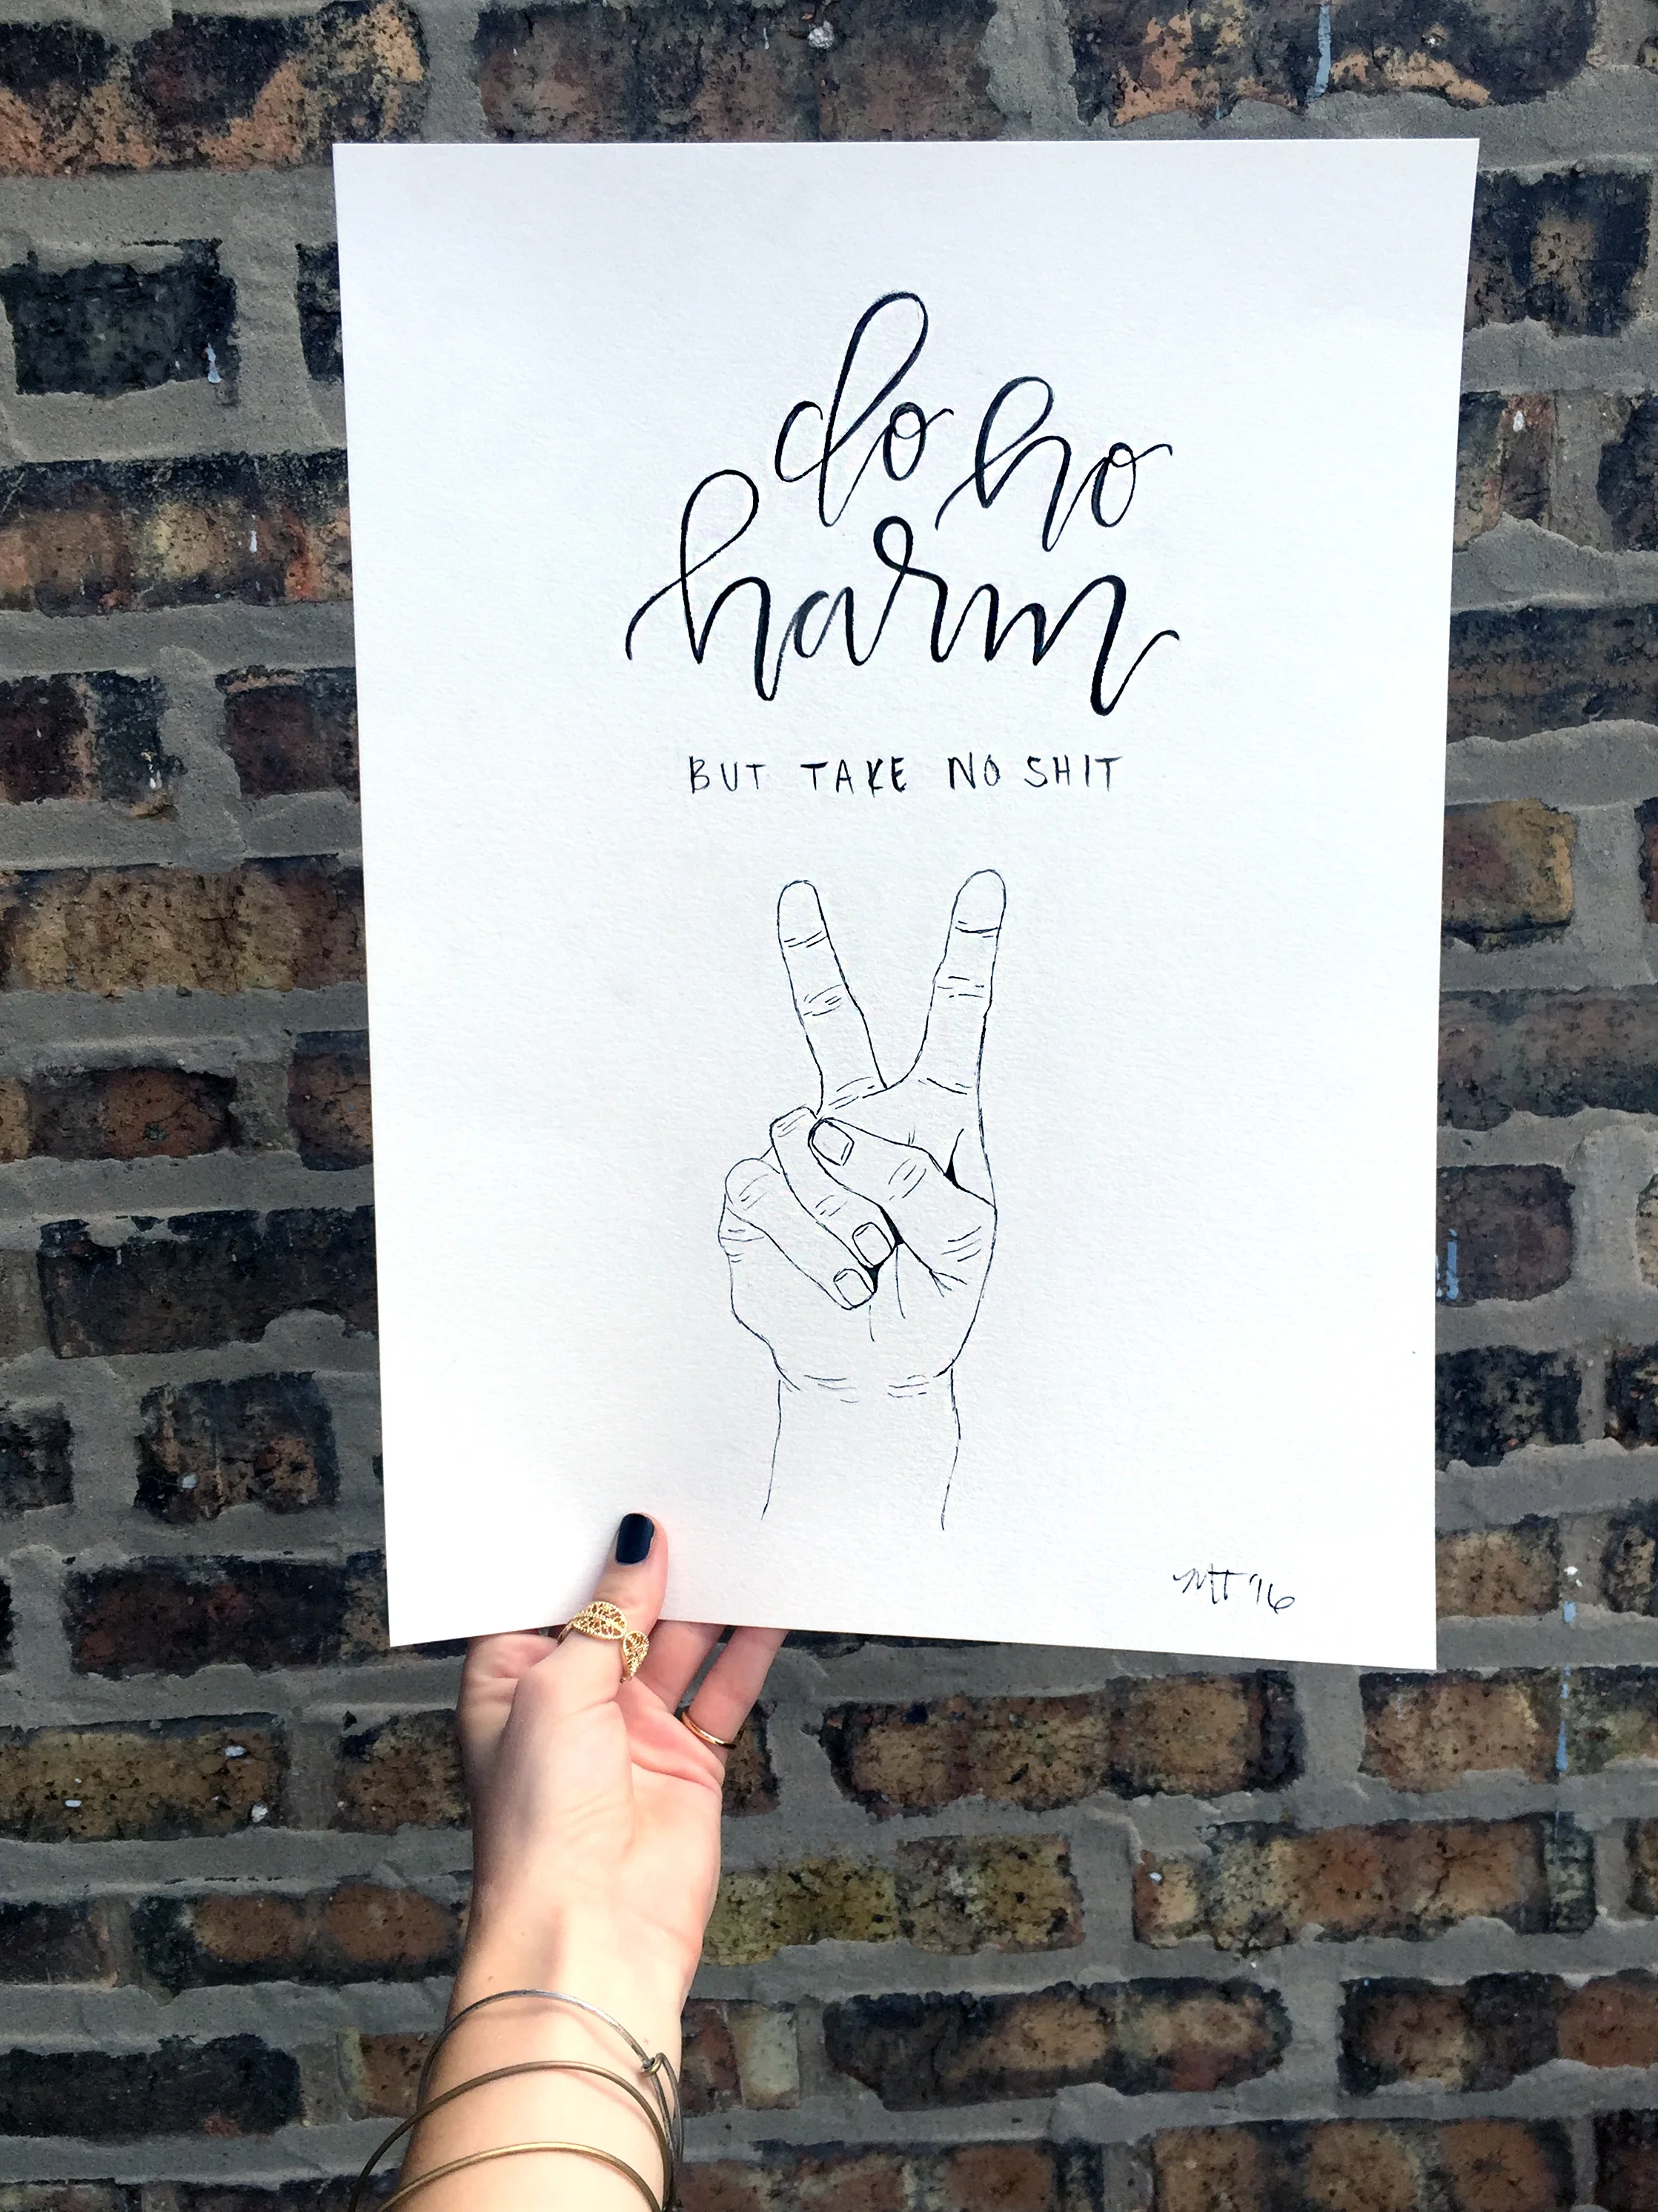 do no
harm
BUT TAKE NO SHIT
MT '16